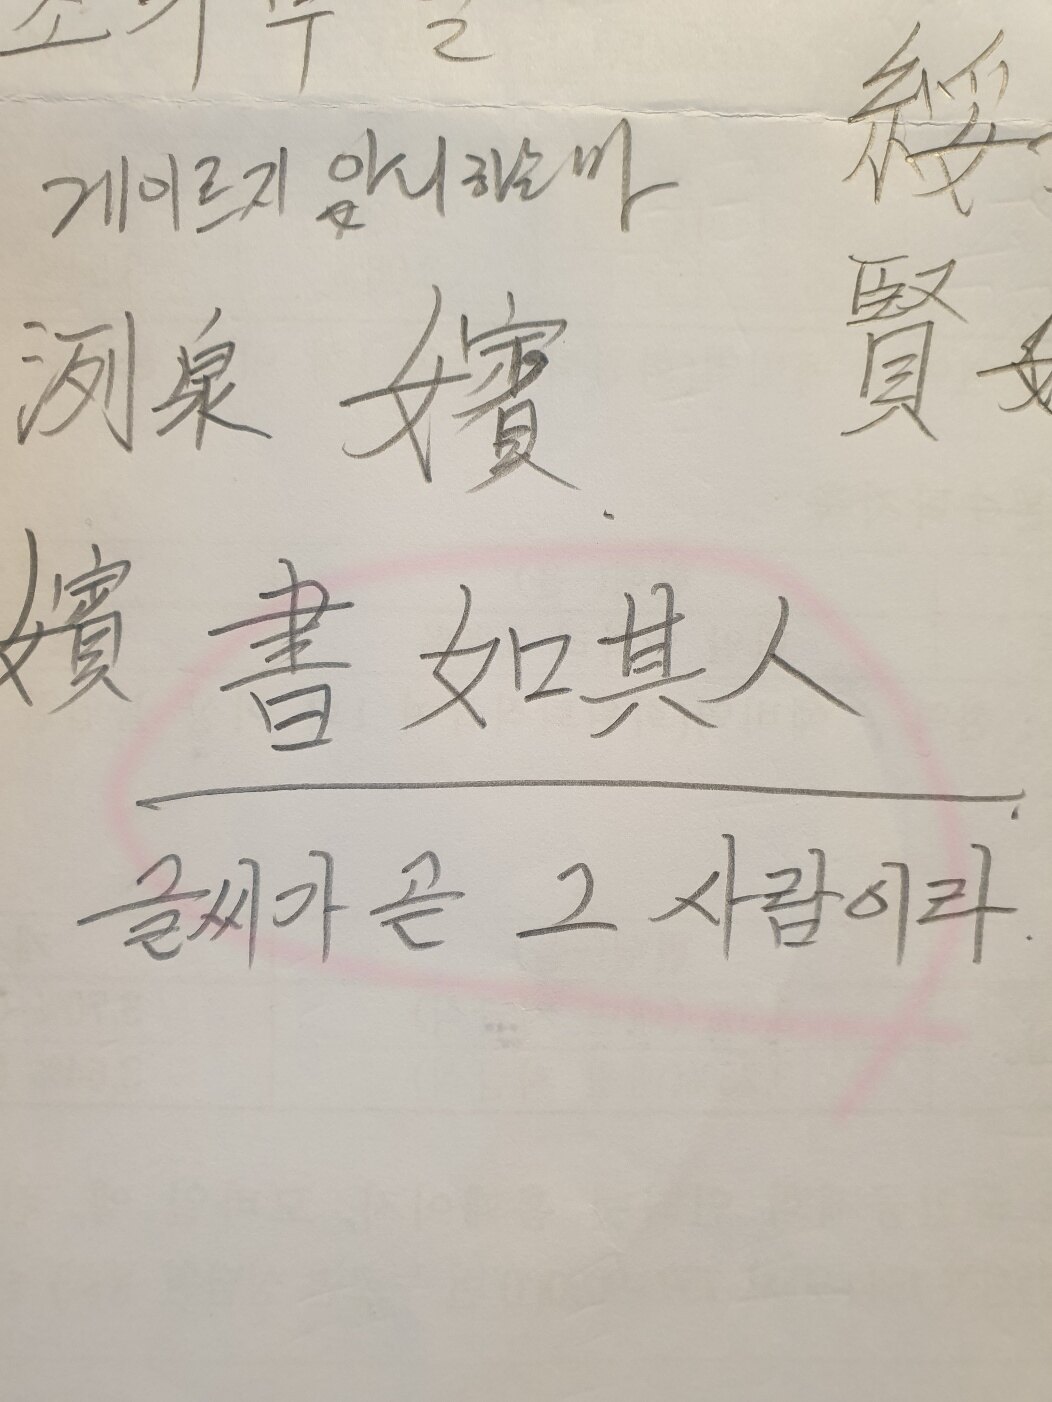 게이르지 앖시하는바
綏
洌泉 嬪 賢
嬪 書如其人
글씨가 곧 그 사람이라.